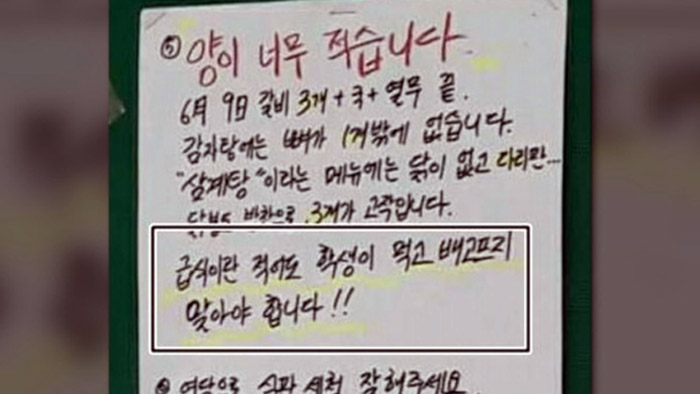 ⑤ 양이 너무 적습니다
6月 9日 갈비 3개 + 국 + 열무 끝.
감자탕에는 뼈가 1개밖에 없습니다.
"삼계탕"이라는 메뉴에는 닭이 없고 다리만...
3개가 고작입니다.
급식이란 적어도 학생이 먹고 배고프지
말아야 합니다!!
식판 세척 잘해주세요